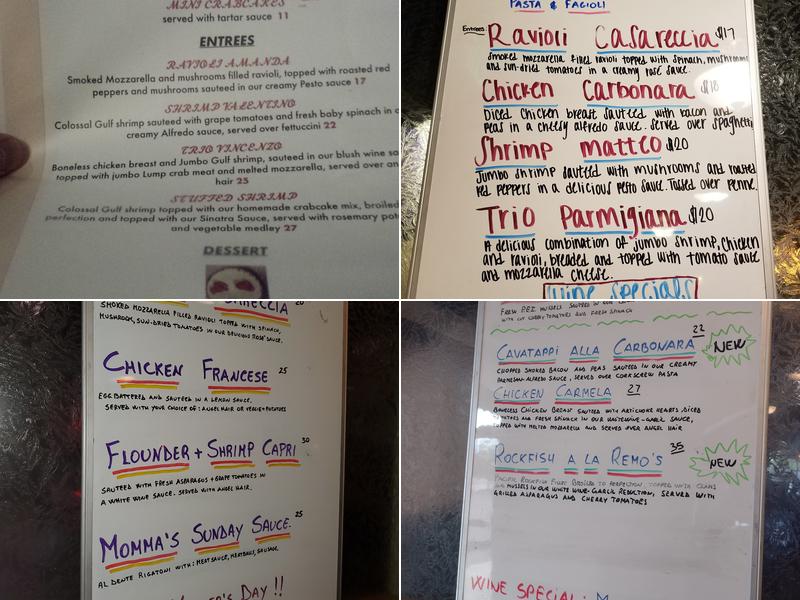 MINI CRABCAKES
served with tartar sauce 11
ENTREES
RAVIOLI AMANDA
Smoked Mozzarella and mushrooms filled ravioli, topped with roasted red
peppers and mushrooms sauteed in our creamy Pesto sauce 17
SHRIMP VALENTINO
Colossal Gulf shrimp sauteed with grape tomatoes and fresh baby spinach in a
creamy Alfredo sauce, served over fettuccini 22
TRIO VINCENZO
Boneless chicken breast and Jumbo Gulf shrimp, sauteed in our blush wine
topped with jumbo Lump crab meat and melted mozzarella, served over
hair 25
STUFFED SHRIMP
Colossal Gulf shrimp topped with our homemade crabcake mix, broiled
perfection and topped with our Sinatra Sauce, served with rosemary
and vegetable medley 27
DESSERT
PASTA & FAGIOLI
Entrees:
Ravioli Casareccia $17
Smoked mozzarella filled ravioli topped with spinach, mushrooms
and sun-dried tomatoes in a creamy rosé sauce.
Chicken Carbonara $18
Diced chicken breast sautéed with bacon and
peas in a cheesy alfredo sauce. Served over spaghetti
Shrimp matteo $20
Jumbo shrimp sautéed with mushrooms and roasted
red peppers in a delicious pesto sauce. Tossed over penne.
Trio Parmigiana $20
A delicious combination of jumbo shrimp, chicken
and ravioli, breaded and topped with tomato sauce
and mozzarella cheese.
Wine specials
SMOKED MOZZARELLA FILLED RAVIOLI TOPPED WITH SPINACH,
MUSHROOK, SUN-DRIED TOMATOES IN OUR DELICIOUS ROSÉ SAUCE.
CHICKEN FRANCESE 25
EGG BATTERED AND SAUTEED IN A LEMON SAUCE.
SERVED WITH YOUR CHOICE OF: ANGEL HAIR OR VEGGIE+POTATOES
FLOUNDER + SHRIMP CAPRI 30
SAUTEED WITH FRESH ASPARAGUS + GRAPE TOMATOES IN
A WHITE WINE SAUCE. SERVED WITH ANGEL HAIR.
MOMMA'S SUNDAY SAUCE. 25
AL DENTE RIGATONI WITH: MEAT SAUCE, MEATBALLS, SAUSAGE.
DAY !!
FRESH P.E.I MUSSELS SAUTEED IN OUR
WITH CUT CHERRY TOMATOES AND FRESH SPINACH
CAVATAPPI ALLA CARBONARA 22
NEW
CHOPPED SMOKED BACON AND PEAS SAUTEED IN OUR CREAMY
PARMESAN-ALFREDO SAUCE, SERVED OVER CORKSCREW PASTA
CHICKEN CARMELA 27
BONELESS CHICKEN BREAST SAUTEED WITH ARTICHOKE HEARTS, DICED
TOMATOES AND FRESH SPINACH IN OUR WHITEWINE-GARLIC SAUCE,
TOPPED WITH MELTED MOZZARELLA AND SERVED OVER ANGEL HAIR
ROCKFISH A LA REMO'S 35
NEW
PACIFIC ROCKFISH FILLET BROILED TO PERFECTION, TOPPED WITH CLAMS
MUSSELS IN OUR WHITE WINE-GARLIC REDUCTION, SERVED WITH
GRILLED ASPARAGUS AND CHERRY TOMATOES
WINE SPECIAL: